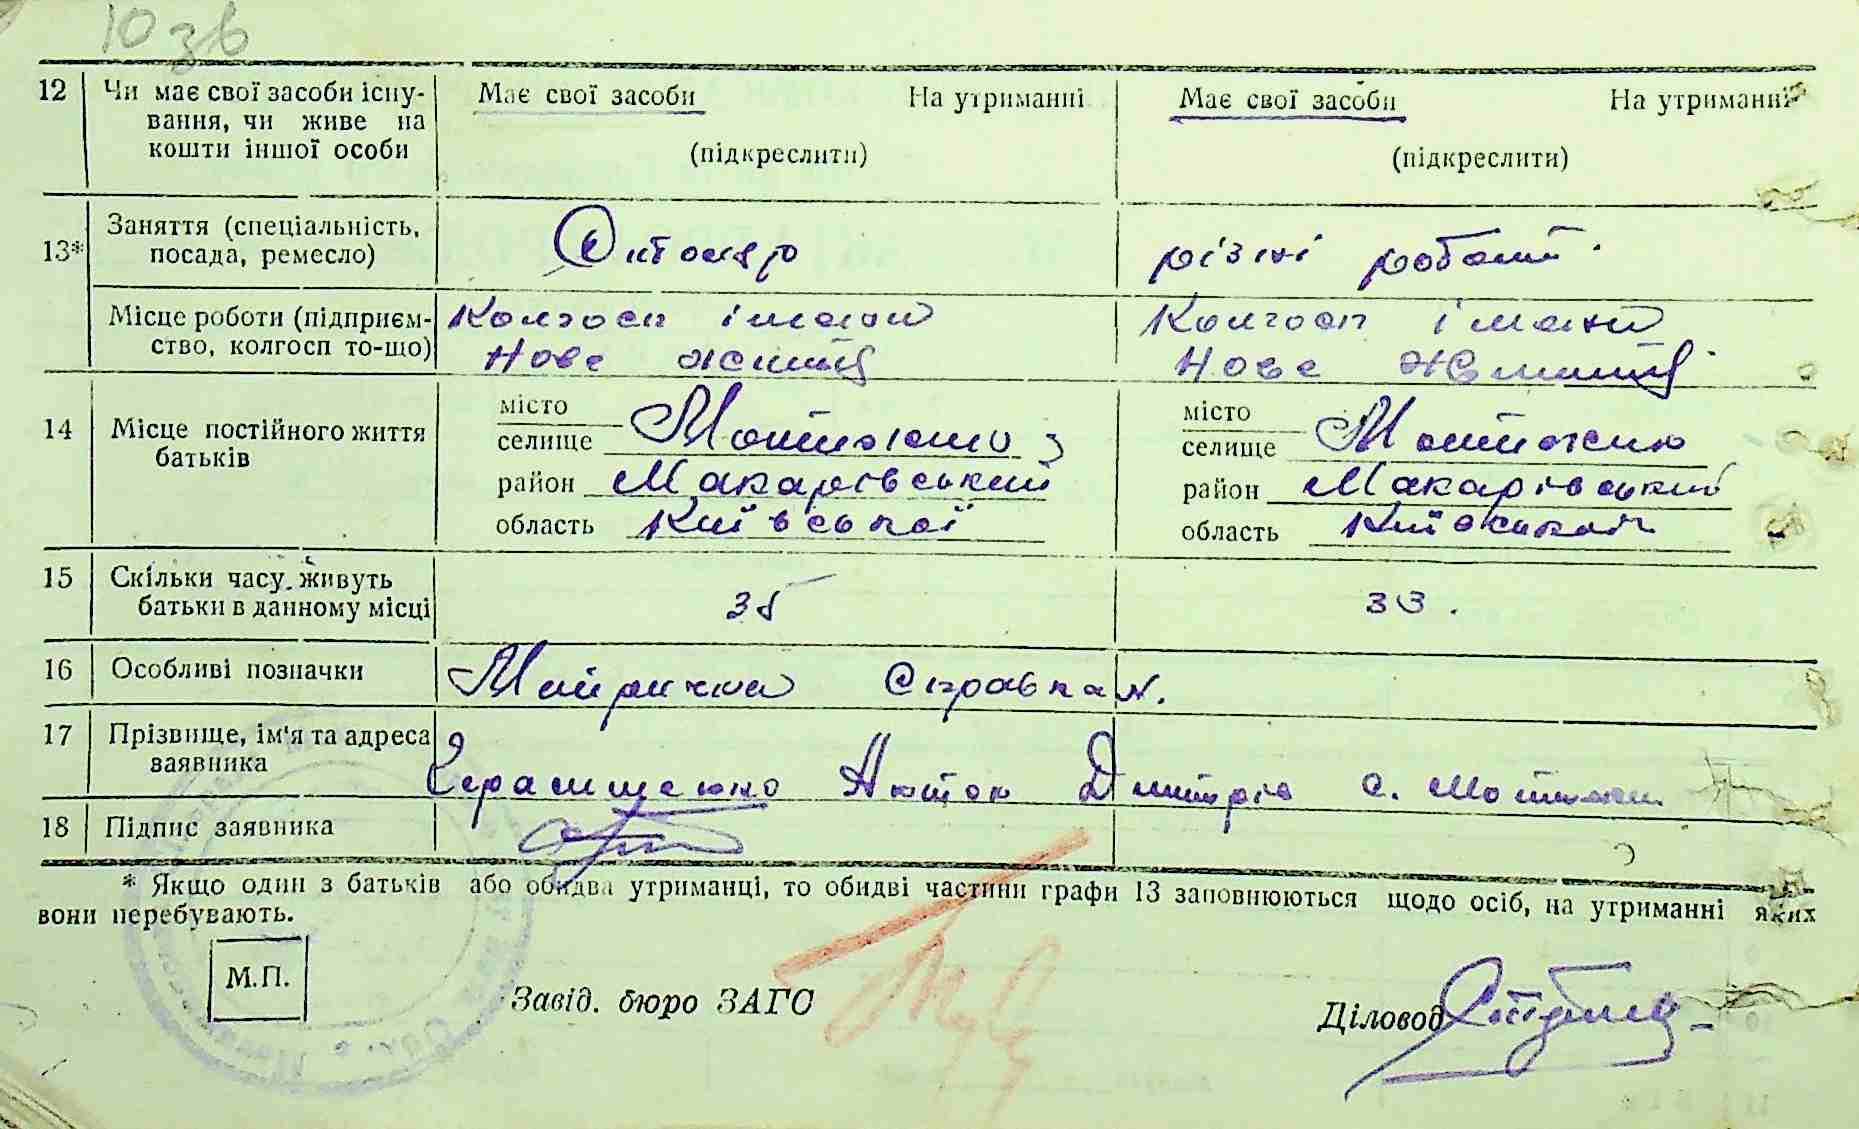 10 зв
12 Чи має свої засоби існу- Має свої засоби На утриманні Має свої засоби На утриманні
вання, чи живе на
кошти іншої особи (підкреслити) (підкреслити)
Заняття (спеціальність,
13* посада, ремесло) різні роботи
Місце роботи (підприєм- Колгосп імени Колгосп імени
ство, колгосп то-що) Нове життя Нове життя
14 Місце постійного життя місто місто
батьків селище Мотижино селище Мотижино
район Макарівський район Макарівський
область Київської область Київської
15 Скільки часу живуть
батьки в данному місці 35 33.
16 Особливі позначки справка
17 Прізвище, ім'я та адреса
заявника Герасименко Антон Дмитрів с. Мотижин
18 Підпис заявника
* Якщо один з батьків або обидва утриманці, то обидві частини графи 13 заповнюються щодо осіб, на утриманні яких
вони перебувають.
М.П.
Завід. бюро ЗАГС Діловод